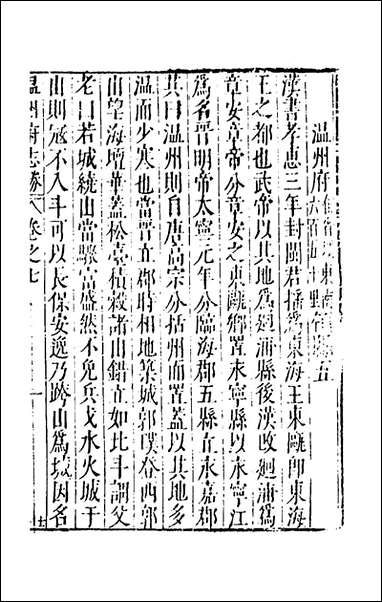 温州府在省城東南六百四十里領縣五
漢書孝惠三年封閩君搖爲東海王東甌卽東海
王之都也武帝以其地爲迴浦縣後漢改迴浦爲
章安章帝分章安之東甌鄉置永寧縣以永寧江
爲名晉明帝太寧元年分臨海郡五縣立永嘉郡
其曰温州則自唐高宗分括州而置蓋以其地多
温而少寒也當晉立郡時相地築城郭璞登西郭
山望海壇華蓋松臺積穀諸山錯立如北斗謂父
老曰若城繞山當驟富盛然不免兵戈水火城于
山則冦不入斗可以長保安逸乃跨山爲城因名
温州府志勝 卷之七 一